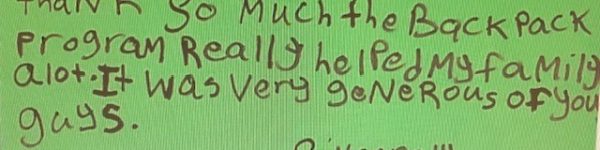 Thank so Much the BackPack
Program Really helped My faMily
alot. It was very geNeRous of you
guys.